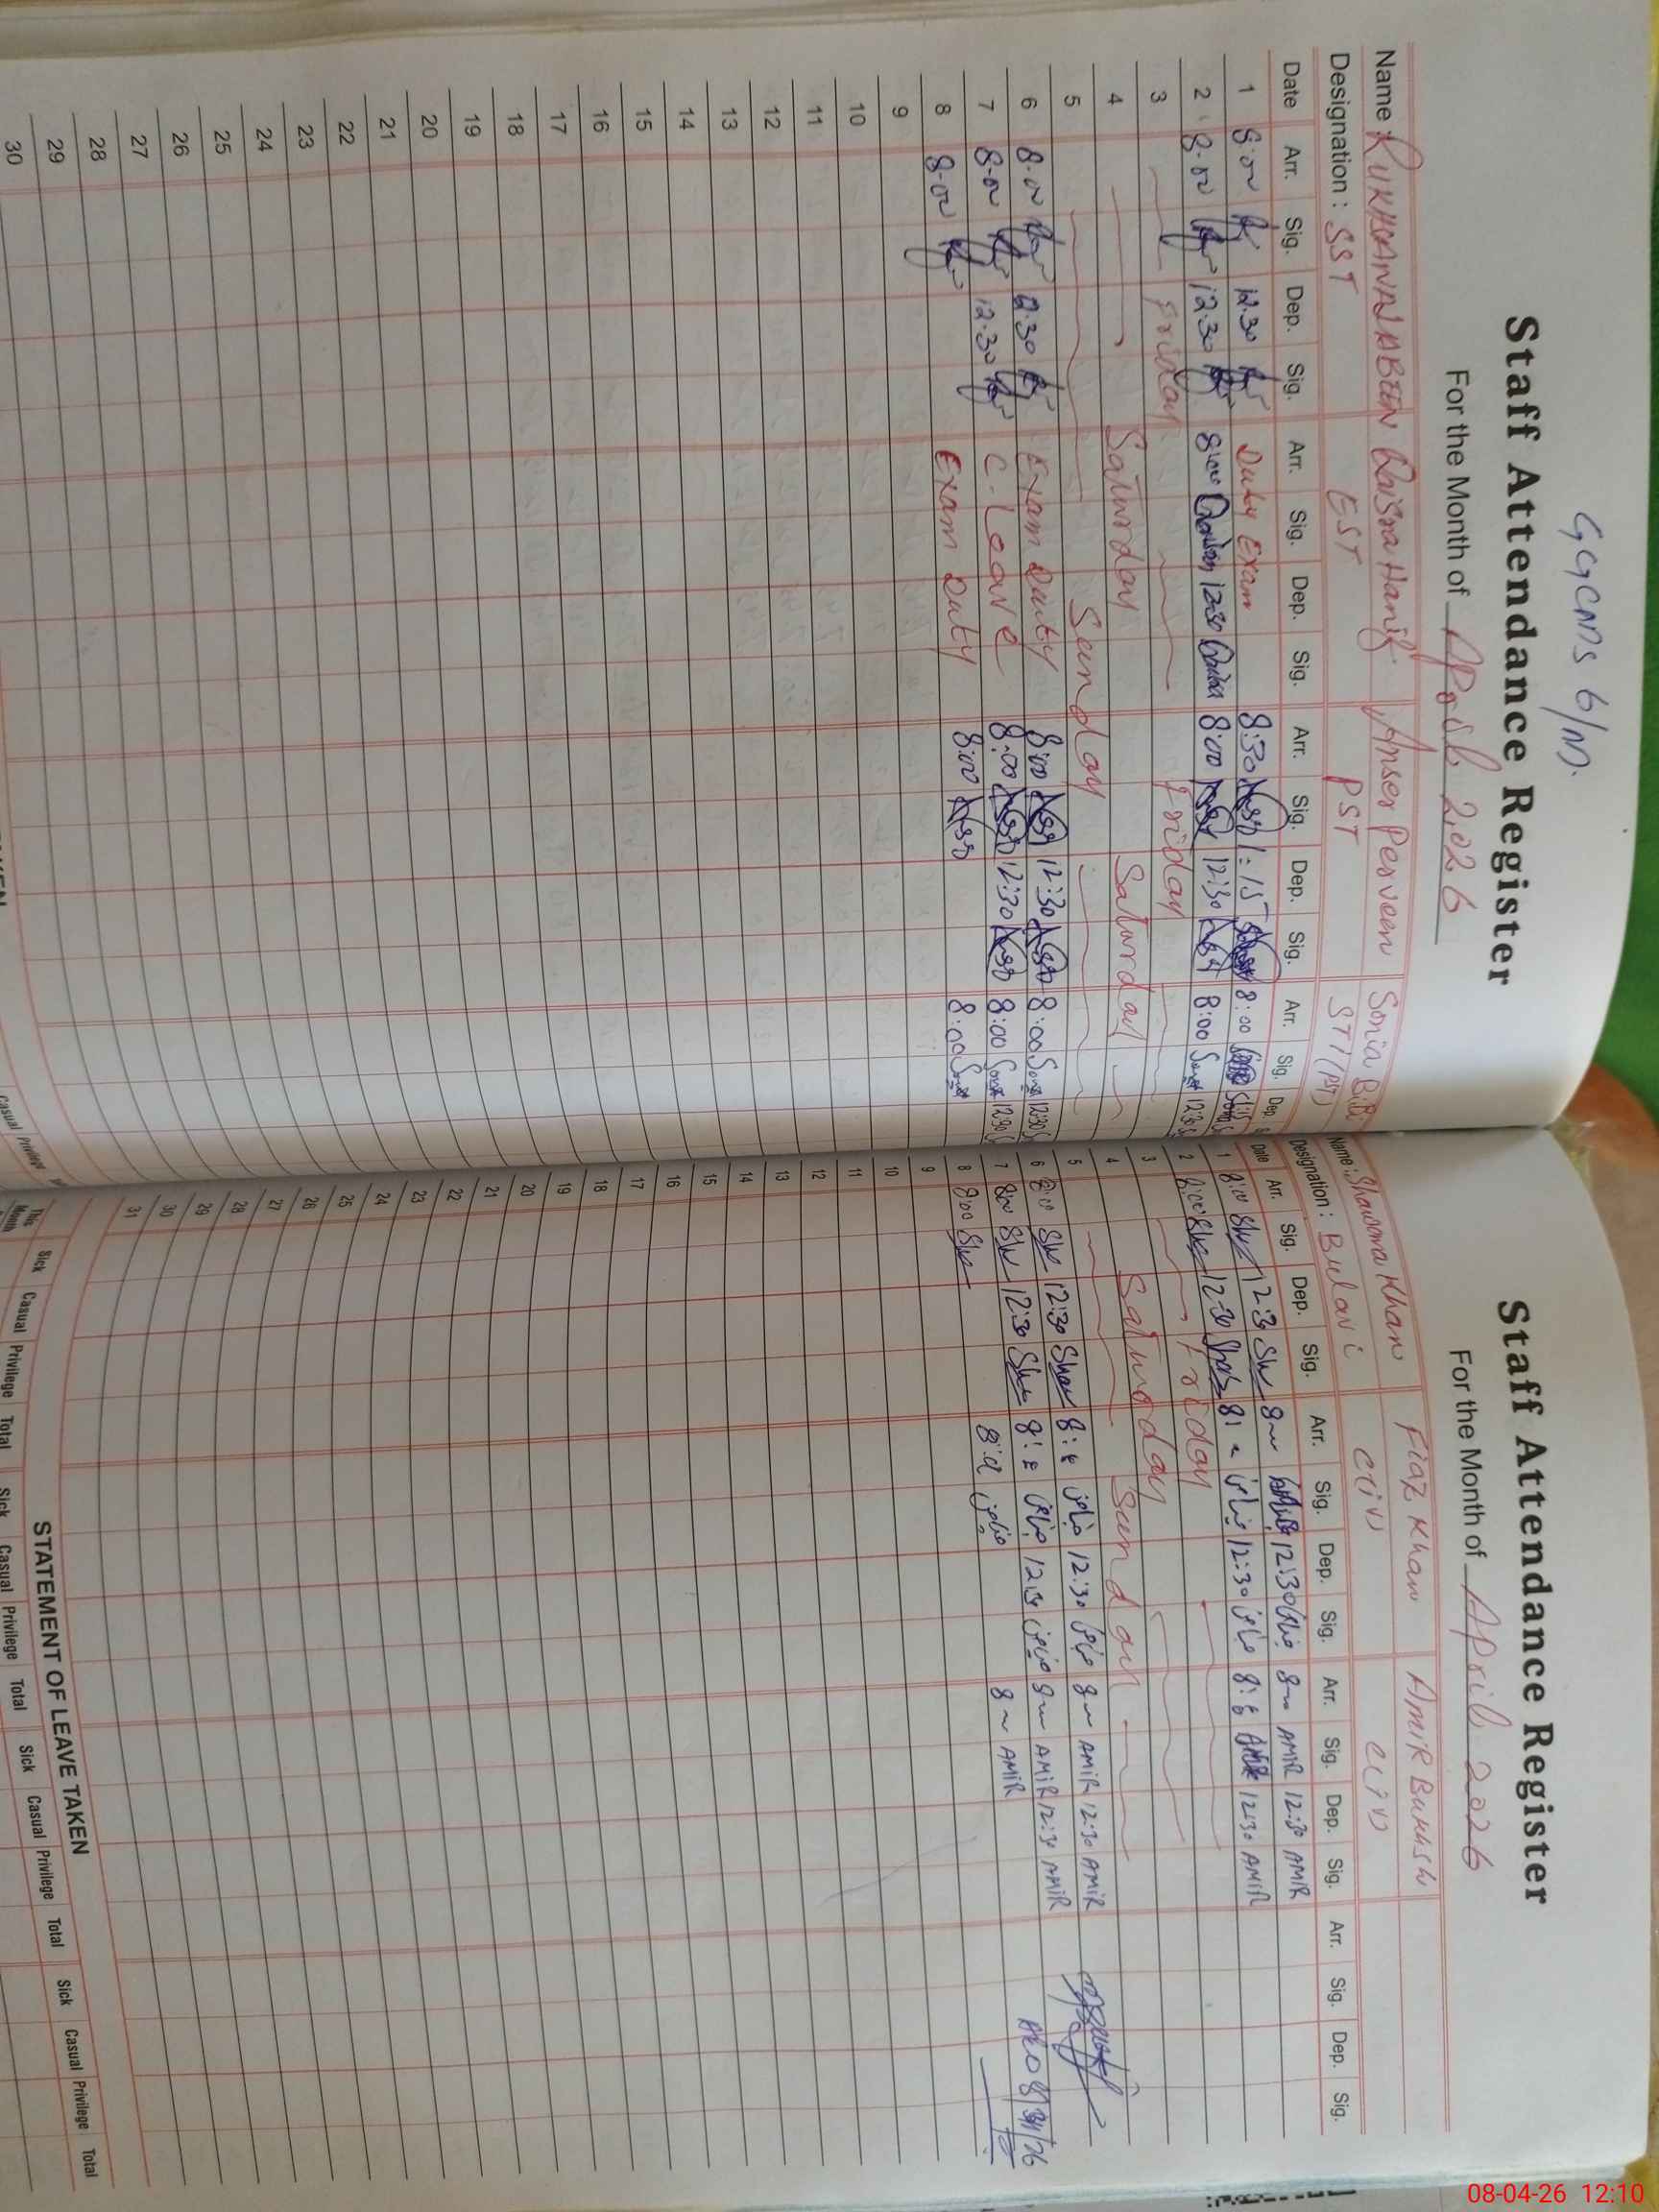 GGCMS 6/M.
Staff Attendance Register
For the Month of April 2026
Name : RUKHSANA JABEEN Qaisra Hanif Anser Perveen Sonia Bibi
Designation : SST EST PST STI (PST)
Date Arr. Sig. Dep. Sig. Arr. Sig. Dep. Sig. Arr. Sig. Dep. Sig. Arr. Sig. Dep.
1 8:00 12:30 Duty Exam 8:30 1:15 8:00
2 8:00 12:30 8:00 12:30 8:00 12:30 8:00 12:30
3 Friday Friday
4 Saturday Saturday
5 Sunday
6 8:00 12:30 Exam Duty 8:00 12:30 8:00 12:30
7 8:00 12:30 C. Leave 8:00 12:30 8:00 12:30
8 8:00 Exam Duty 8:00 8:00
9
10
11
12
13
14
15
16
17
18
19
20
21
22
23
24
25
26
27
28
29
30
Casual Privilege
Staff Attendance Register
For the Month of April 2026
Name : Shawana Khan Fiaz Khan AMIR Bukhsh
Designation : Bulavi C(iv) C(iv)
Date Arr. Sig. Dep. Sig. Arr. Sig. Dep. Sig. Arr. Sig. Dep. Sig. Arr. Sig. Dep. Sig.
1 8:00 Sha 12:30 Sha 8 12:30 8 AMIR 12:30 AMIR
2 8:00 Sha 12:30 Sha 8: 12:30 8: AMIR 12:30 AMIR
3 Friday
4 Saturday
5 Sunday
6 8:00 Sha 12:30 Sha 8: 12:30 8 AMIR 12:30 AMIR
7 8:00 Sha 12:30 Sha 8: 12:30 8 AMIR 12:30 AMIR
8 8:00 Sha 8: 8 AMIR
9
10
11
12
13
14
15
16
17
18
19
20
21
22
23
24
25
26
27
28
29
30
31
STATEMENT OF LEAVE TAKEN
This Month Sick Casual Privilege Total Sick Casual Privilege Total Sick Casual Privilege Total Sick Casual Privilege Total
08-04-26 12:10